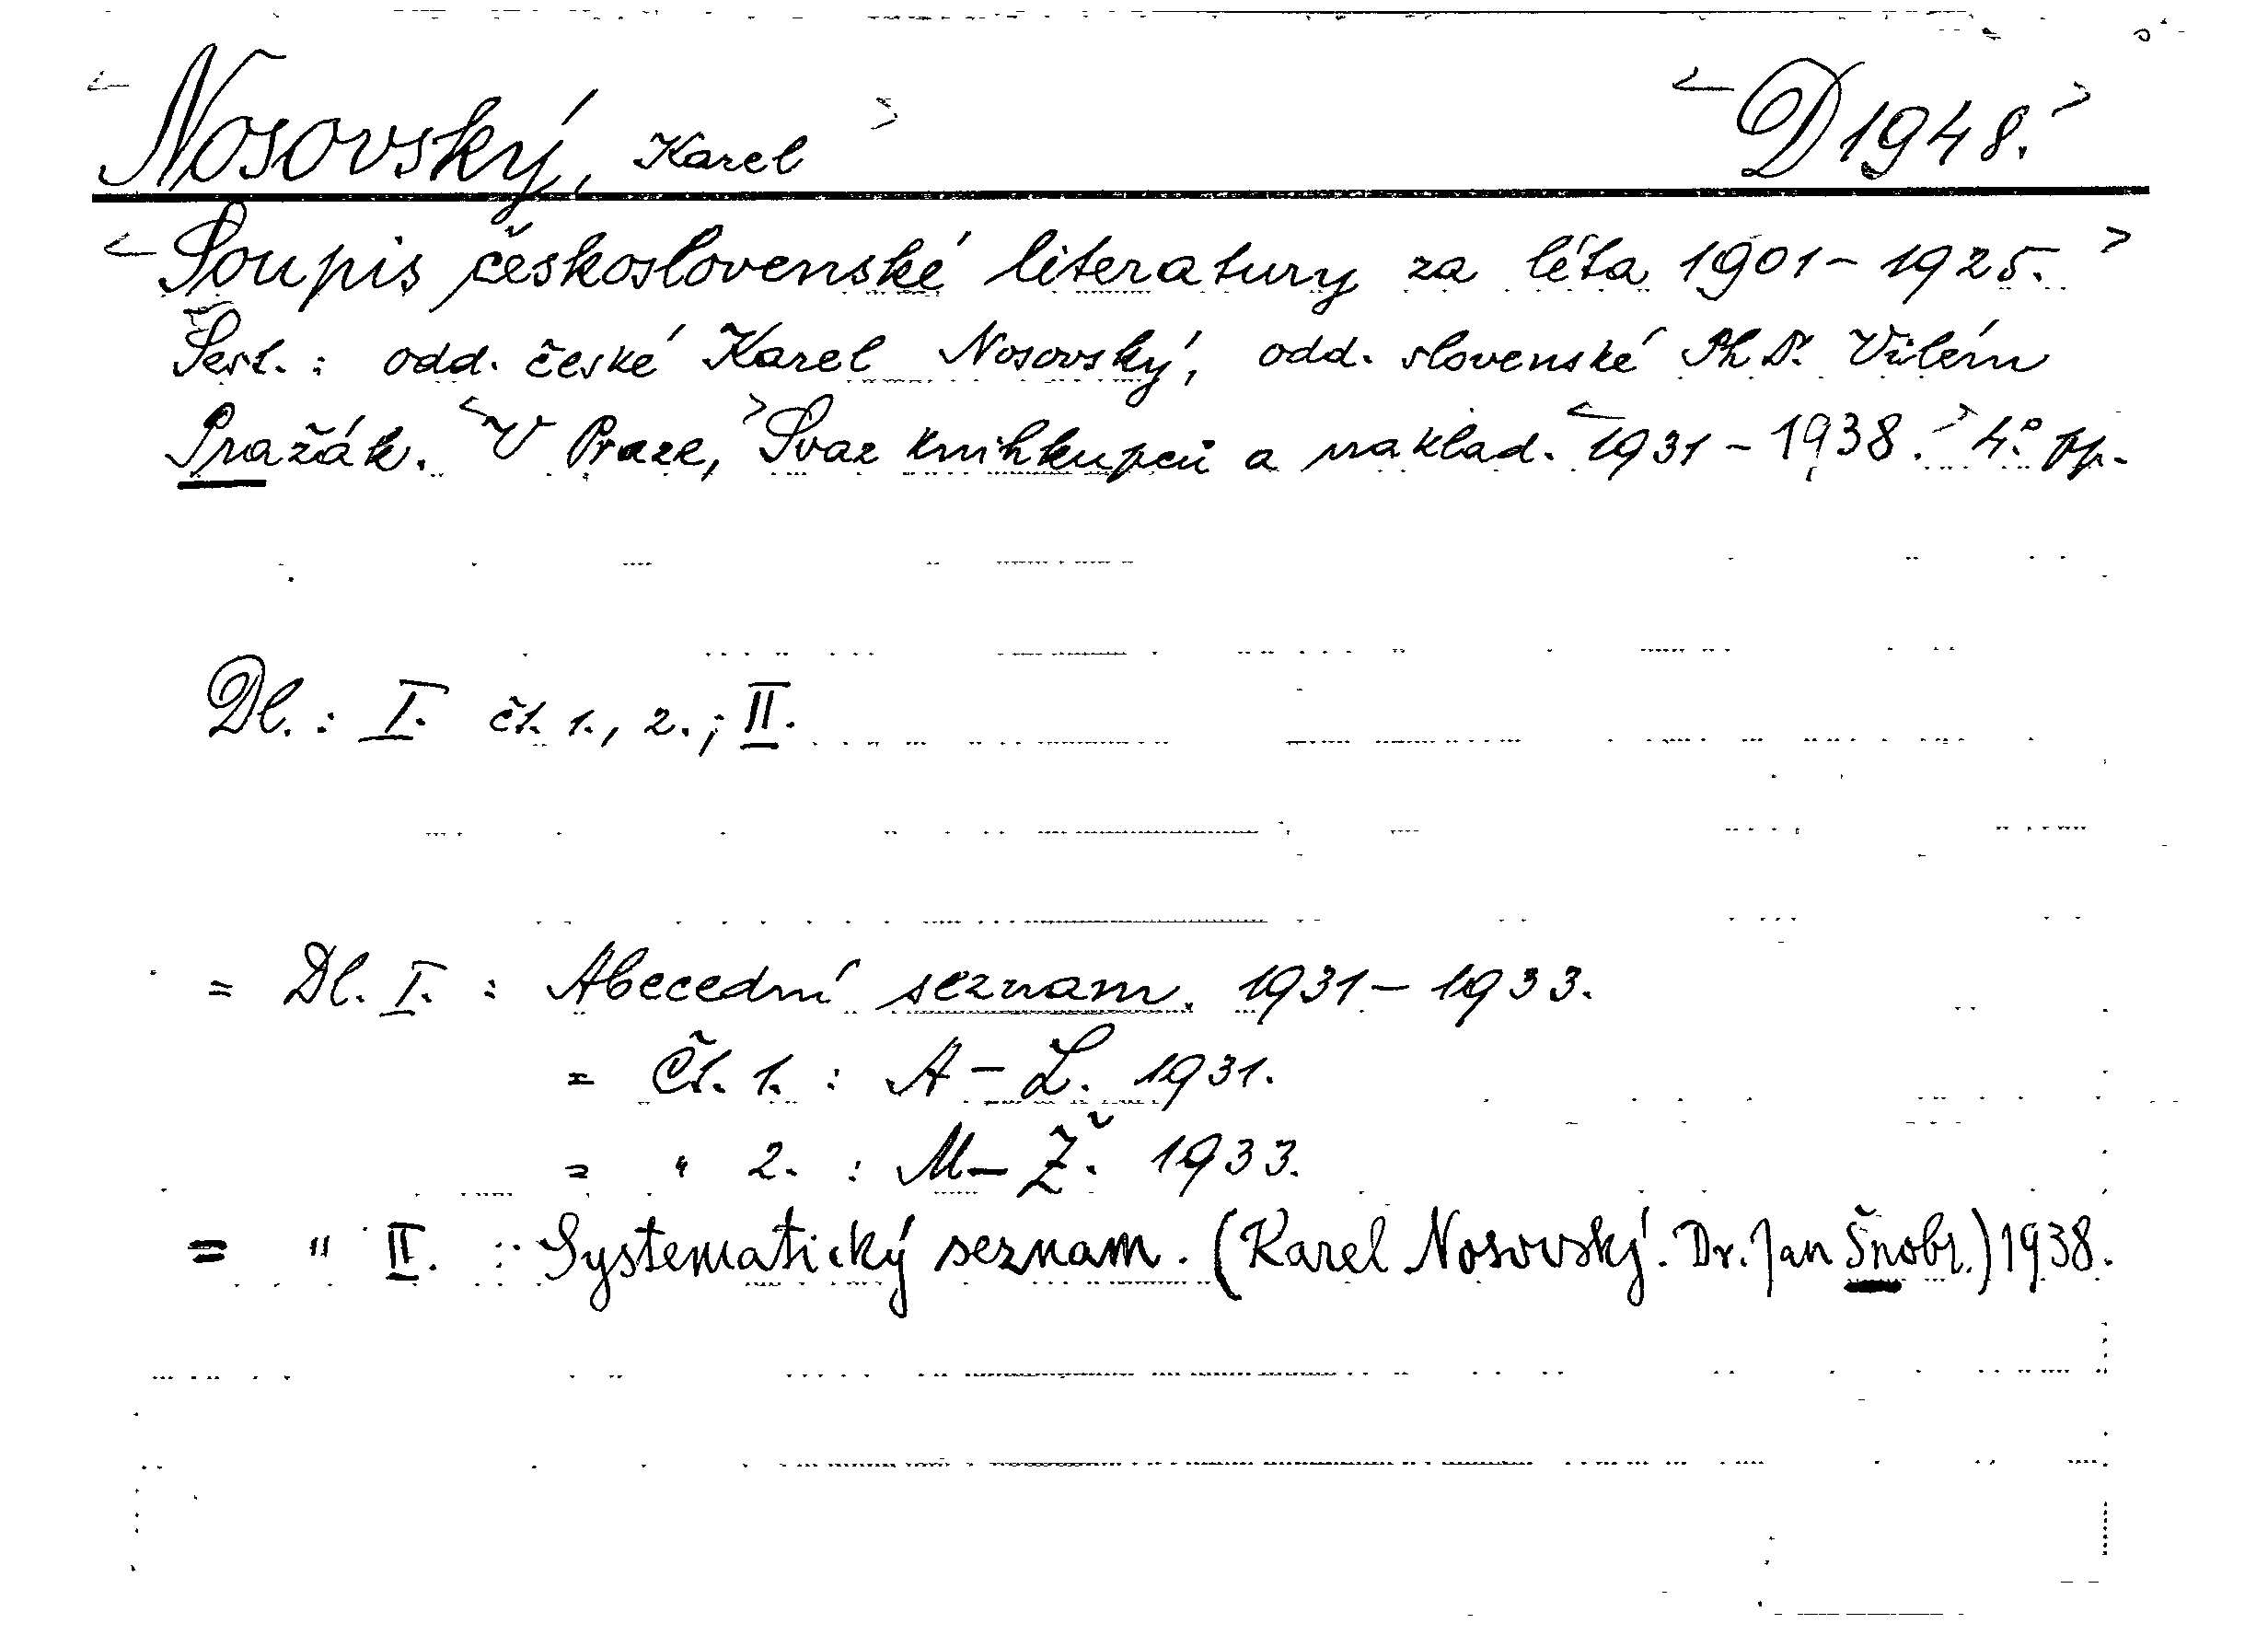 <Nosovský, Karel> <D 1948.>
<Soupis československé literatury za léta 1901-1925.>
Sest.: odd. české Karel Nosovský, odd. slovenské PhDr. Vilém
Pražák. <V Praze,> Svaz knihkupců a naklad. <1931-1938.> 4°. pp.
Dl.: I. čt. 1., 2.; II.
= Dl. I. : Abecední seznam. 1931-1933.
= Čt. 1. : A-L. 1931.
= " 2. : M-Ž. 1933.
= " II. : Systematický seznam. (Karel Nosovský. Dr. Jan Šnobr.) 1938.